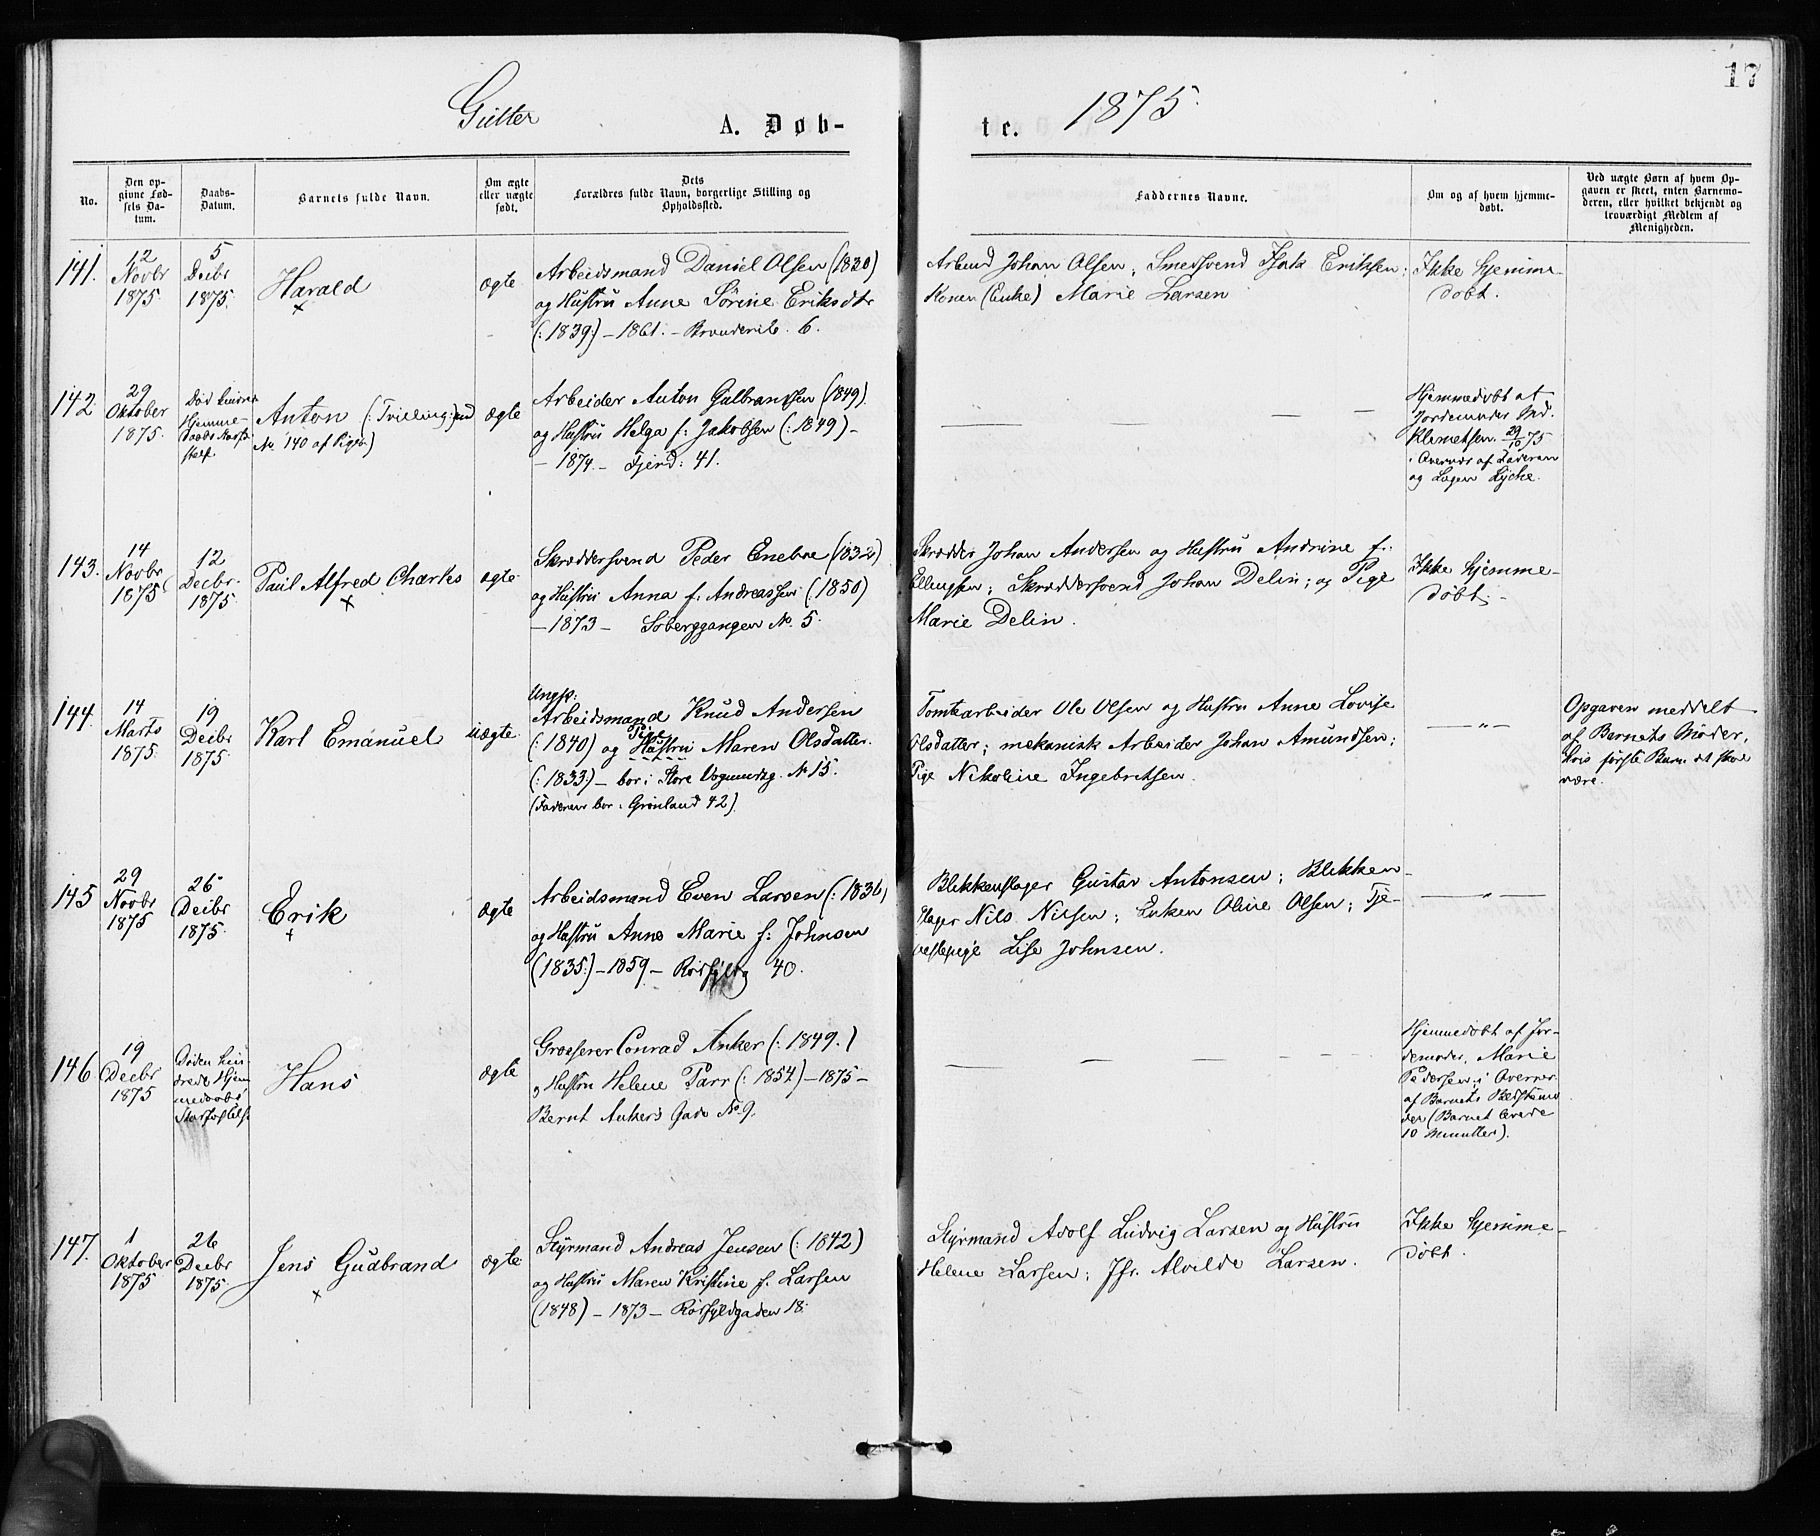 17
Gutter A. Døb- te. 1875.
No.
Den op-
givne Fød-
sels Da-
tum.
Daabs-
Datum.
Barnets fulde Navn.
Om ægte
eller uægte
født.
Dets
Forældres fulde Navn, borgerlige Stilling og
Opholdssted.
Faddernes Navne.
Om og af hvem hjemme-
døbt.
Ved uægte Børn af hvem Op-
gaven er skeet, enten Barnemo-
deren, eller hvilket bekjendt og
troværdigt Medlem af
Menigheden.
141.
12
Novbr
1875
5
Decbr
1875.
Harald
×
ægte
Arbeidsmand Daniel Olsen (1830)
og Hustru Anne Sørine Eriksdtr
(:1839:) – 1861. – 6.
Arbmd Johan Olsen; Smedsvend Isak Eriksen;
Konen (Enke) Marie Larsen
Ikke hjemme-
døbt.
142.
29
Oktober
1875.
Død
Hjemme-
Anton (: Tvilling:)
No. 140 af Pigeb.)
ægte
Arbeider Anton Gulbrandsen (1849)
og Hustru Helga f: Jakobsen (:1849) –
– 1874 – Fjerd: 41.
Hjemmedøbt af
Jordemoder
Klemetsen 29/10 75
i Overvær af Faderen
og Lægen Lyche.
143.
14
Novbr
1875
12
Decbr.
1875
Paul Alfred Charles
×
ægte
Skræddersvend Peder Enebae (1832)
og Hustru Anna f. Andreassen (:1850)
– 1873 – Soberggangen No. 5.
Skrædder Johan Andersen og Hustru Andrine f.
Ellingsen; Skræddersvend Johan Delin; og Pige
Marie Delin.
Ikke hjemme-
døbt. –
144.
14
Marts
1875.
19
Decbr
1875
Karl Emanuel
uægte
Ungk:
Arbeidsmand Knud Andersen
Pige
(:1840) og Hustru Maren Olsdatter.
(:1833:) – bor i Store Vognmdsg. No 15.
(Faderen bor i Grønland 42).
Tomtearbeider Ole Olsen og Hustru Anne Lovise
Olsdatter; mekanisk Arbeider Johan Amundsen;
Pige Nikoline Ingebretsen.
— " —
Opgaven meddelt
af Barnets Moder,
hvis første Barn det skal
være.
145
29
Novbr
1875
26
Decbr
1875.
Erik
+
ægte
Arbeidsmand Even Larsen (:1836)
og Hustru Anne Marie f: Johnsen
(1835:) – 1859 – Rørfyldg 40.
Blikkenslager Gustav Antonsen; Blikken-
slager Nils Nilsen; Enken Oline Olsen; Tje-
nestepige Lise Johnsen.
— " —
146
19
Decbr
1875
Døden hin-
drede Hjem-
medaabs
Stadfæstelse
Hans
ægte
Grosserer Conrad Anker (:1849.)
og Hustru Helene Parr (:1854) – 1875 –
Bernt Ankers Gade No 9.
Hjemmedøbt af Jor-
demoder, Marie
Pedersen, i Overvær
af Barnets Bedstemo
der (Barnet levede
10 Minutter).
147.
1
Oktober
1875
26
Decbr
1875
Jens Gudbrand
×
ægte
Styrmand Andreas Jensen (:1842)
og Hustru Maren Kristine f. Larsen
(1848) – 1873 – Rørfyldgaden 18.
Styrmand Adolf Ludvig Larsen og Hustru
Helene Larsen; Jfr. Alvilde Larsen.
Ikke hjemme-
døbt.